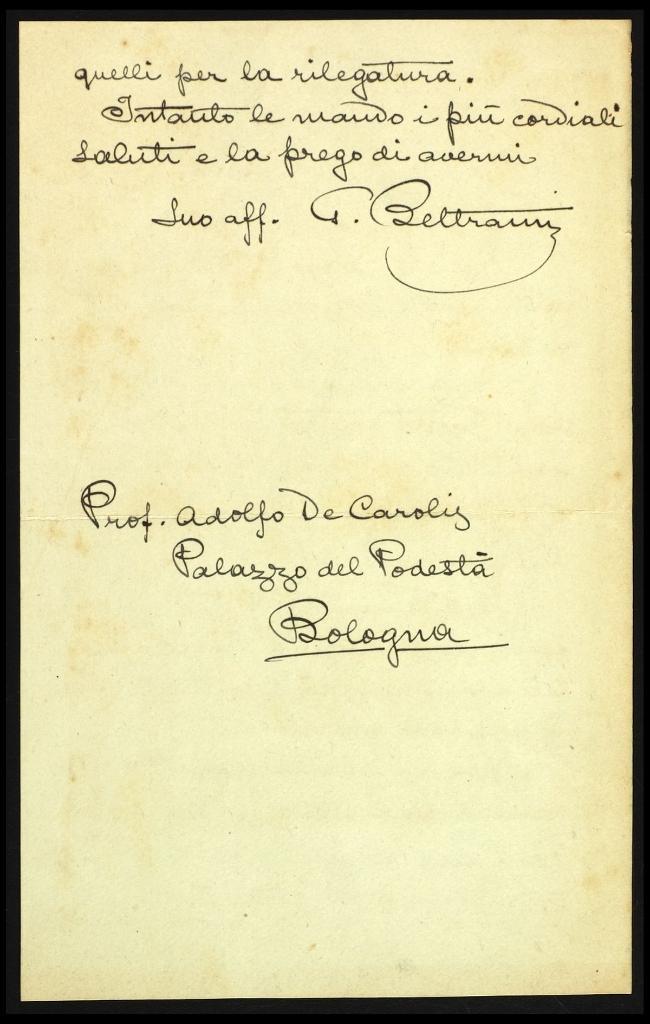 quelli per la rilegatura.
Intanto le mando i più cordiali
saluti e la prego di avermi
Suo aff. G. Beltrami
Prof. Adolfo De Carolis
Palazzo del Podestà
Bologna